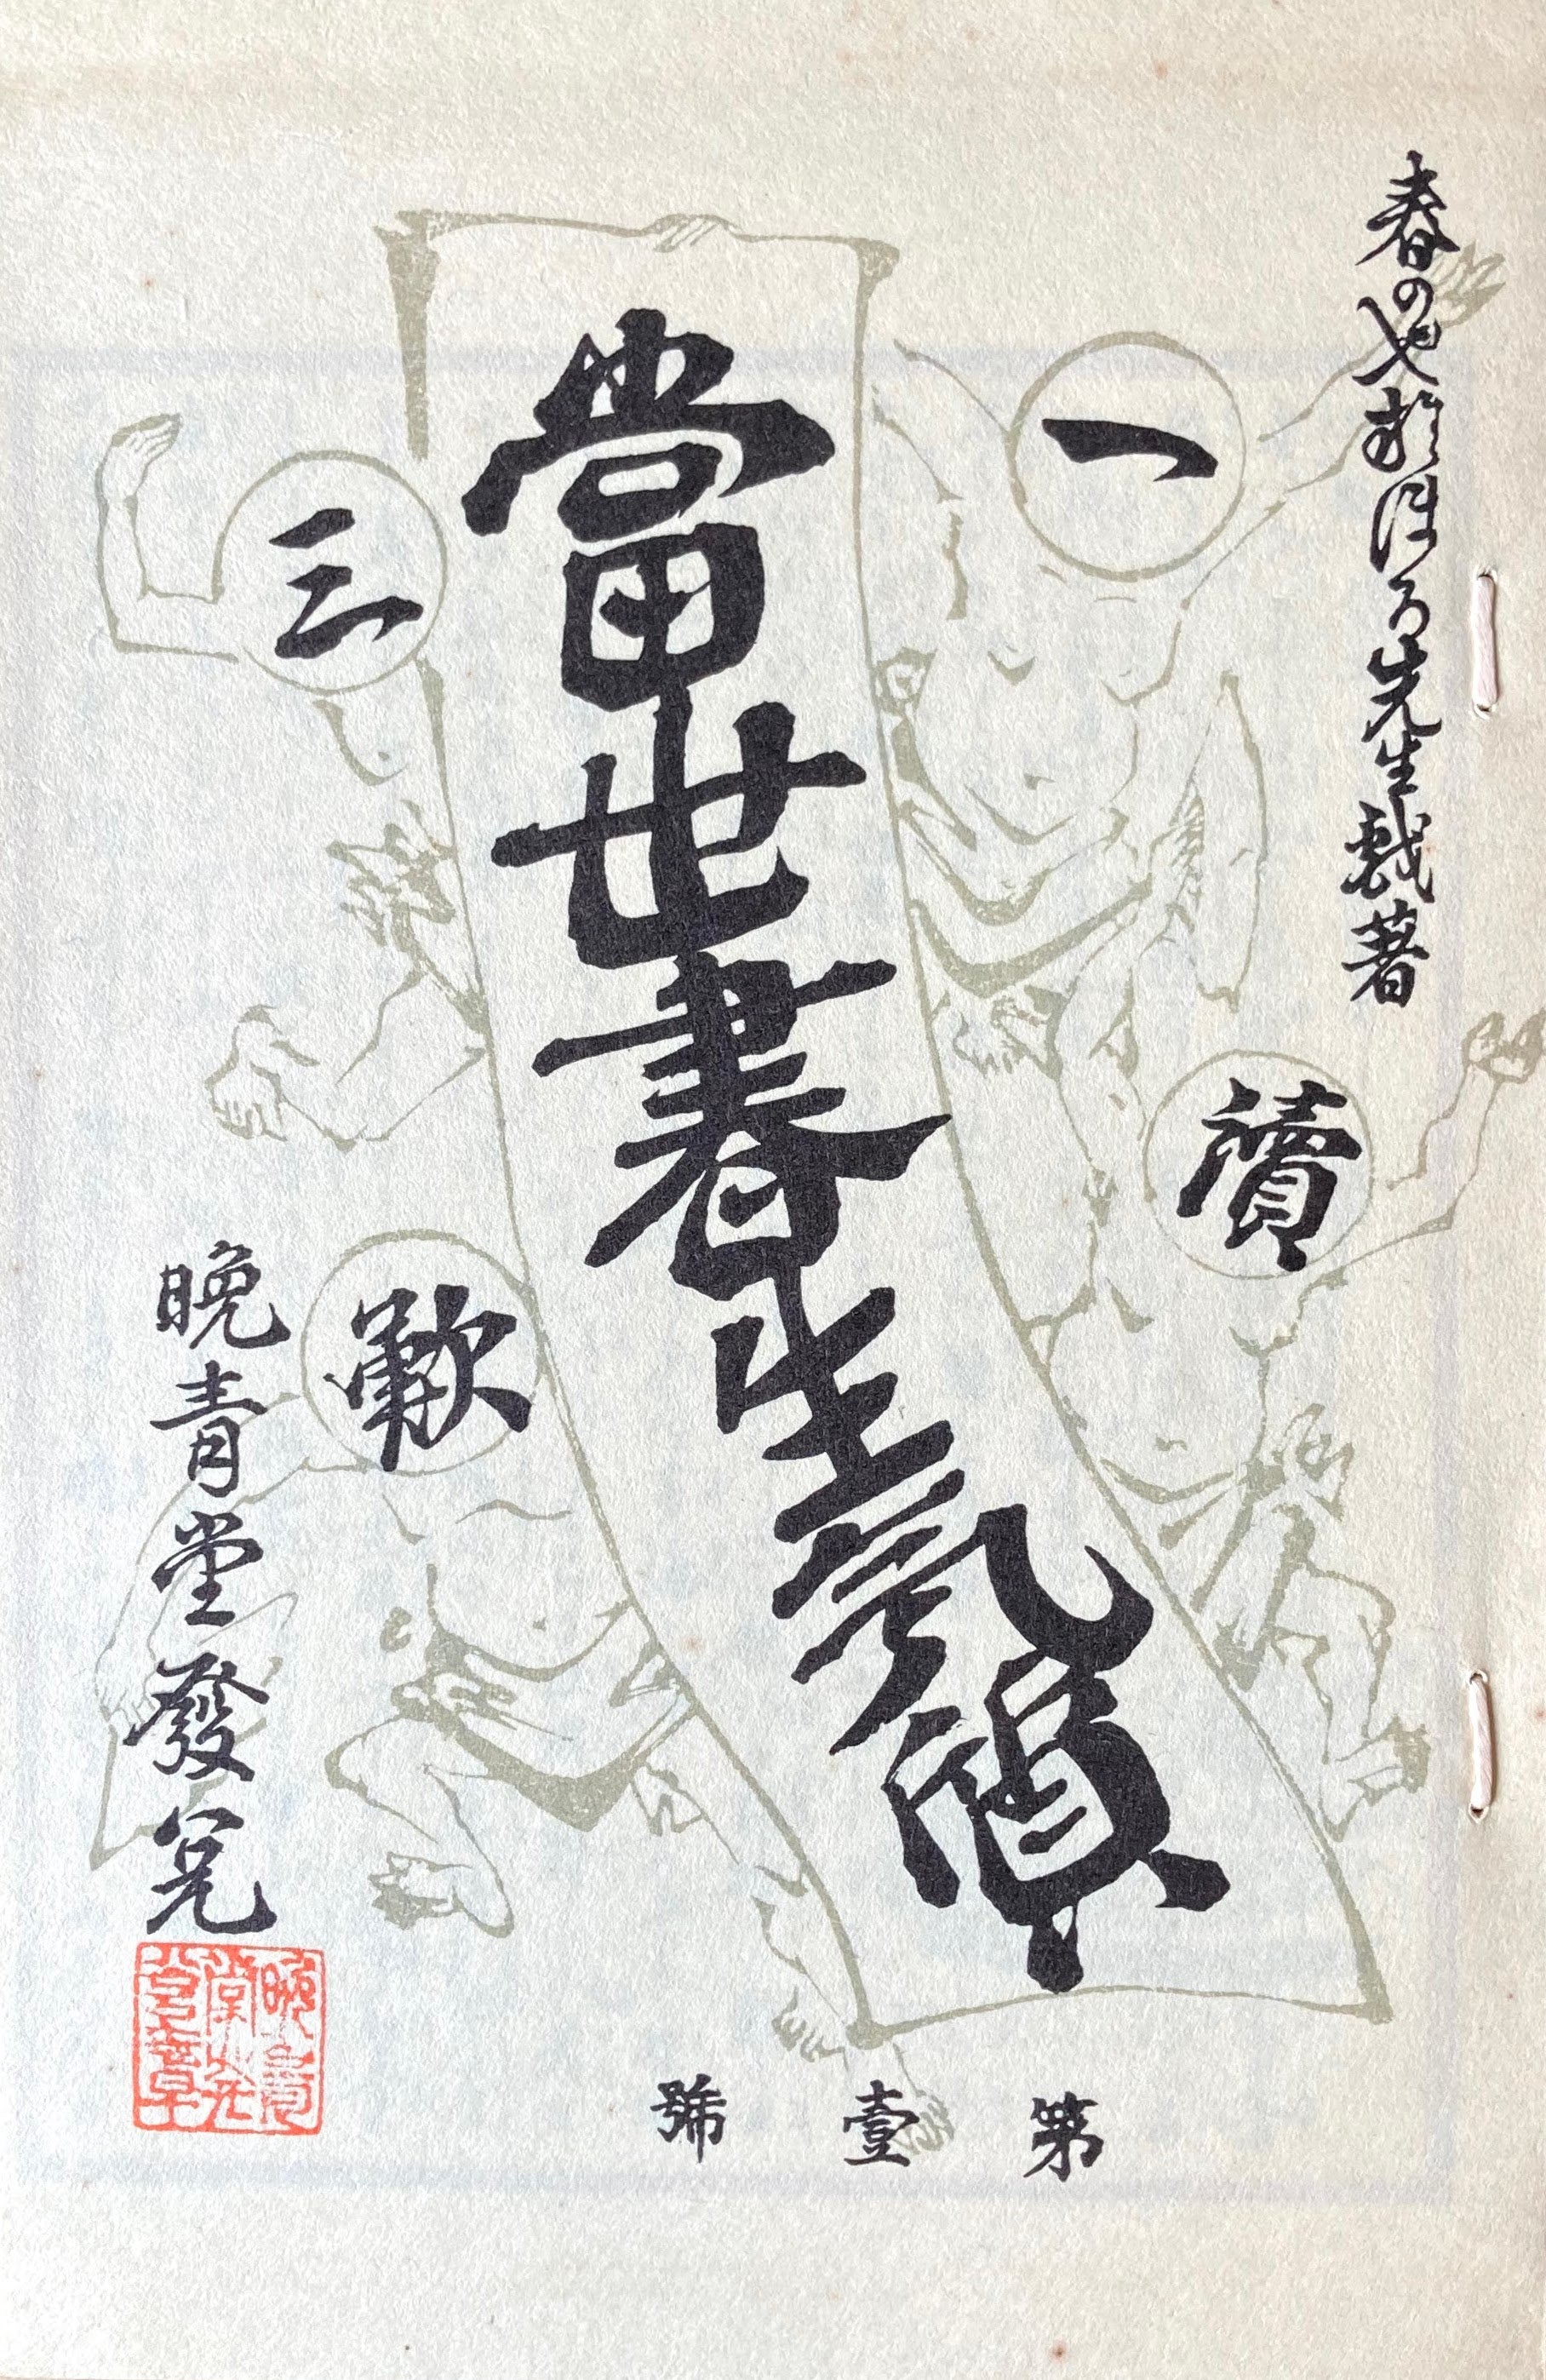 春のやおぼろ先生戯著
一讀三歎
當世書生氣質
第壹號
晩青堂發兌